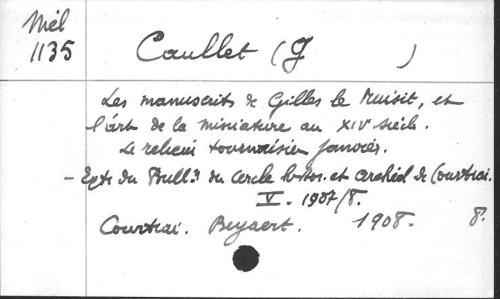 Mél
1135
Caullet (G )
Les manuscrits de Gilles le Muisit, et
l'art de la miniature au XIVe siècle.
Le relieur tournaisien Janvier.
- Extr. du Bull.n du Cercle histor. et archéol de Courtrai.
V. 1907/8.
Courtrai. Beyaert. 1908. 8.